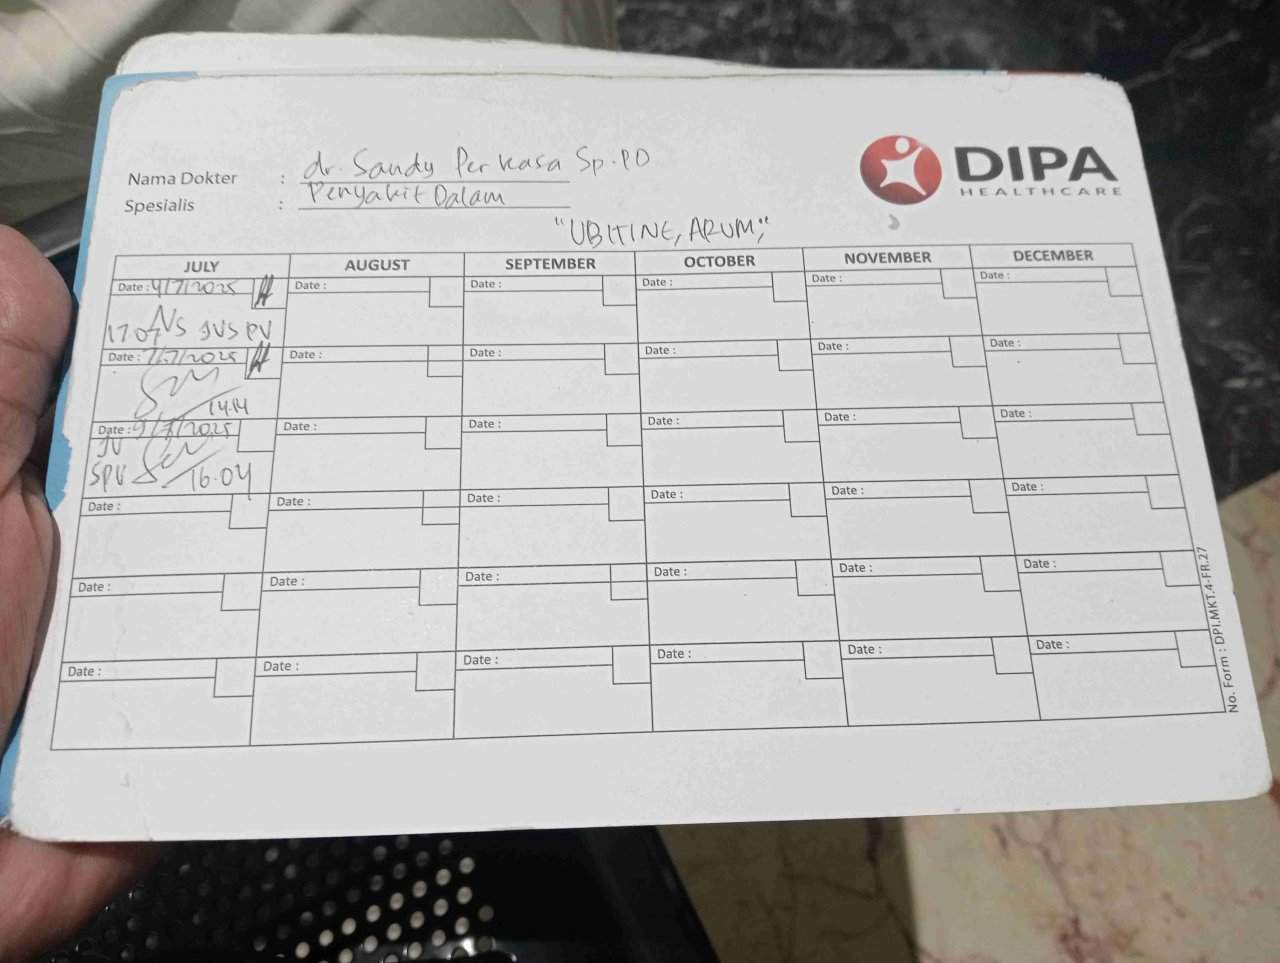 Nama Dokter : dr. Sandy Perkasa Sp.PD
Spesialis : Penyakit Dalam
DIPA
HEALTHCARE
"UBITINE, ARUM,"
JULY AUGUST SEPTEMBER OCTOBER NOVEMBER DECEMBER
Date : 4/7/2025 Date : Date : Date : Date : Date :
17.07
Date : 7/7/2025 Date : Date : Date : Date : Date :
14.14
Date : 9/7/2025 Date : Date : Date : Date : Date :
JV
SPV 16.04
Date : Date : Date : Date : Date : Date :
Date : Date : Date : Date : Date : Date :
Date : Date : Date : Date : Date : Date :
No. Form : DPI.MKT.4-FR.27